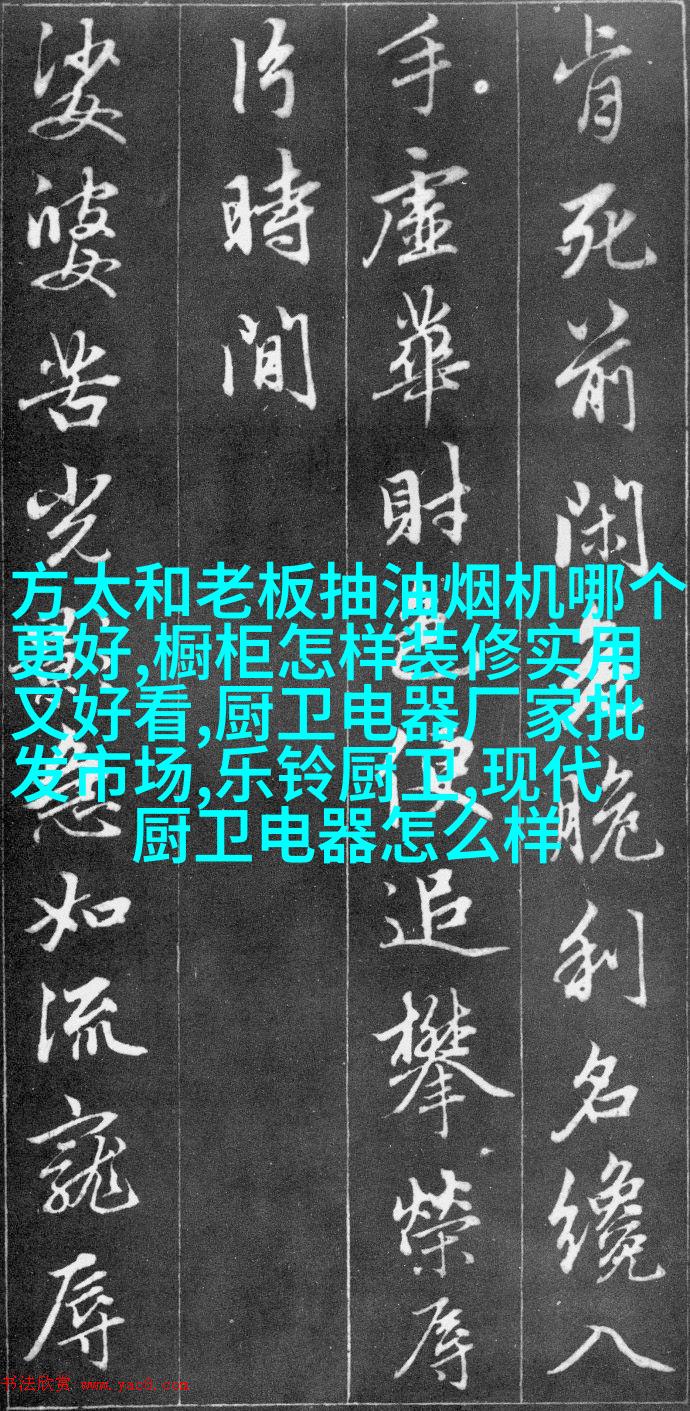 肯死前閑脆利名纔入
手虛華財色便追攀榮辱
片時間
娑婆苦光影急如流寵辱
方太和老板抽油烟机哪个
更好,橱柜怎样装修实用
又好看,厨卫电器厂家批
发市场,乐铃厨卫,现代
厨卫电器怎么样
书法欣赏 www.yac8.com